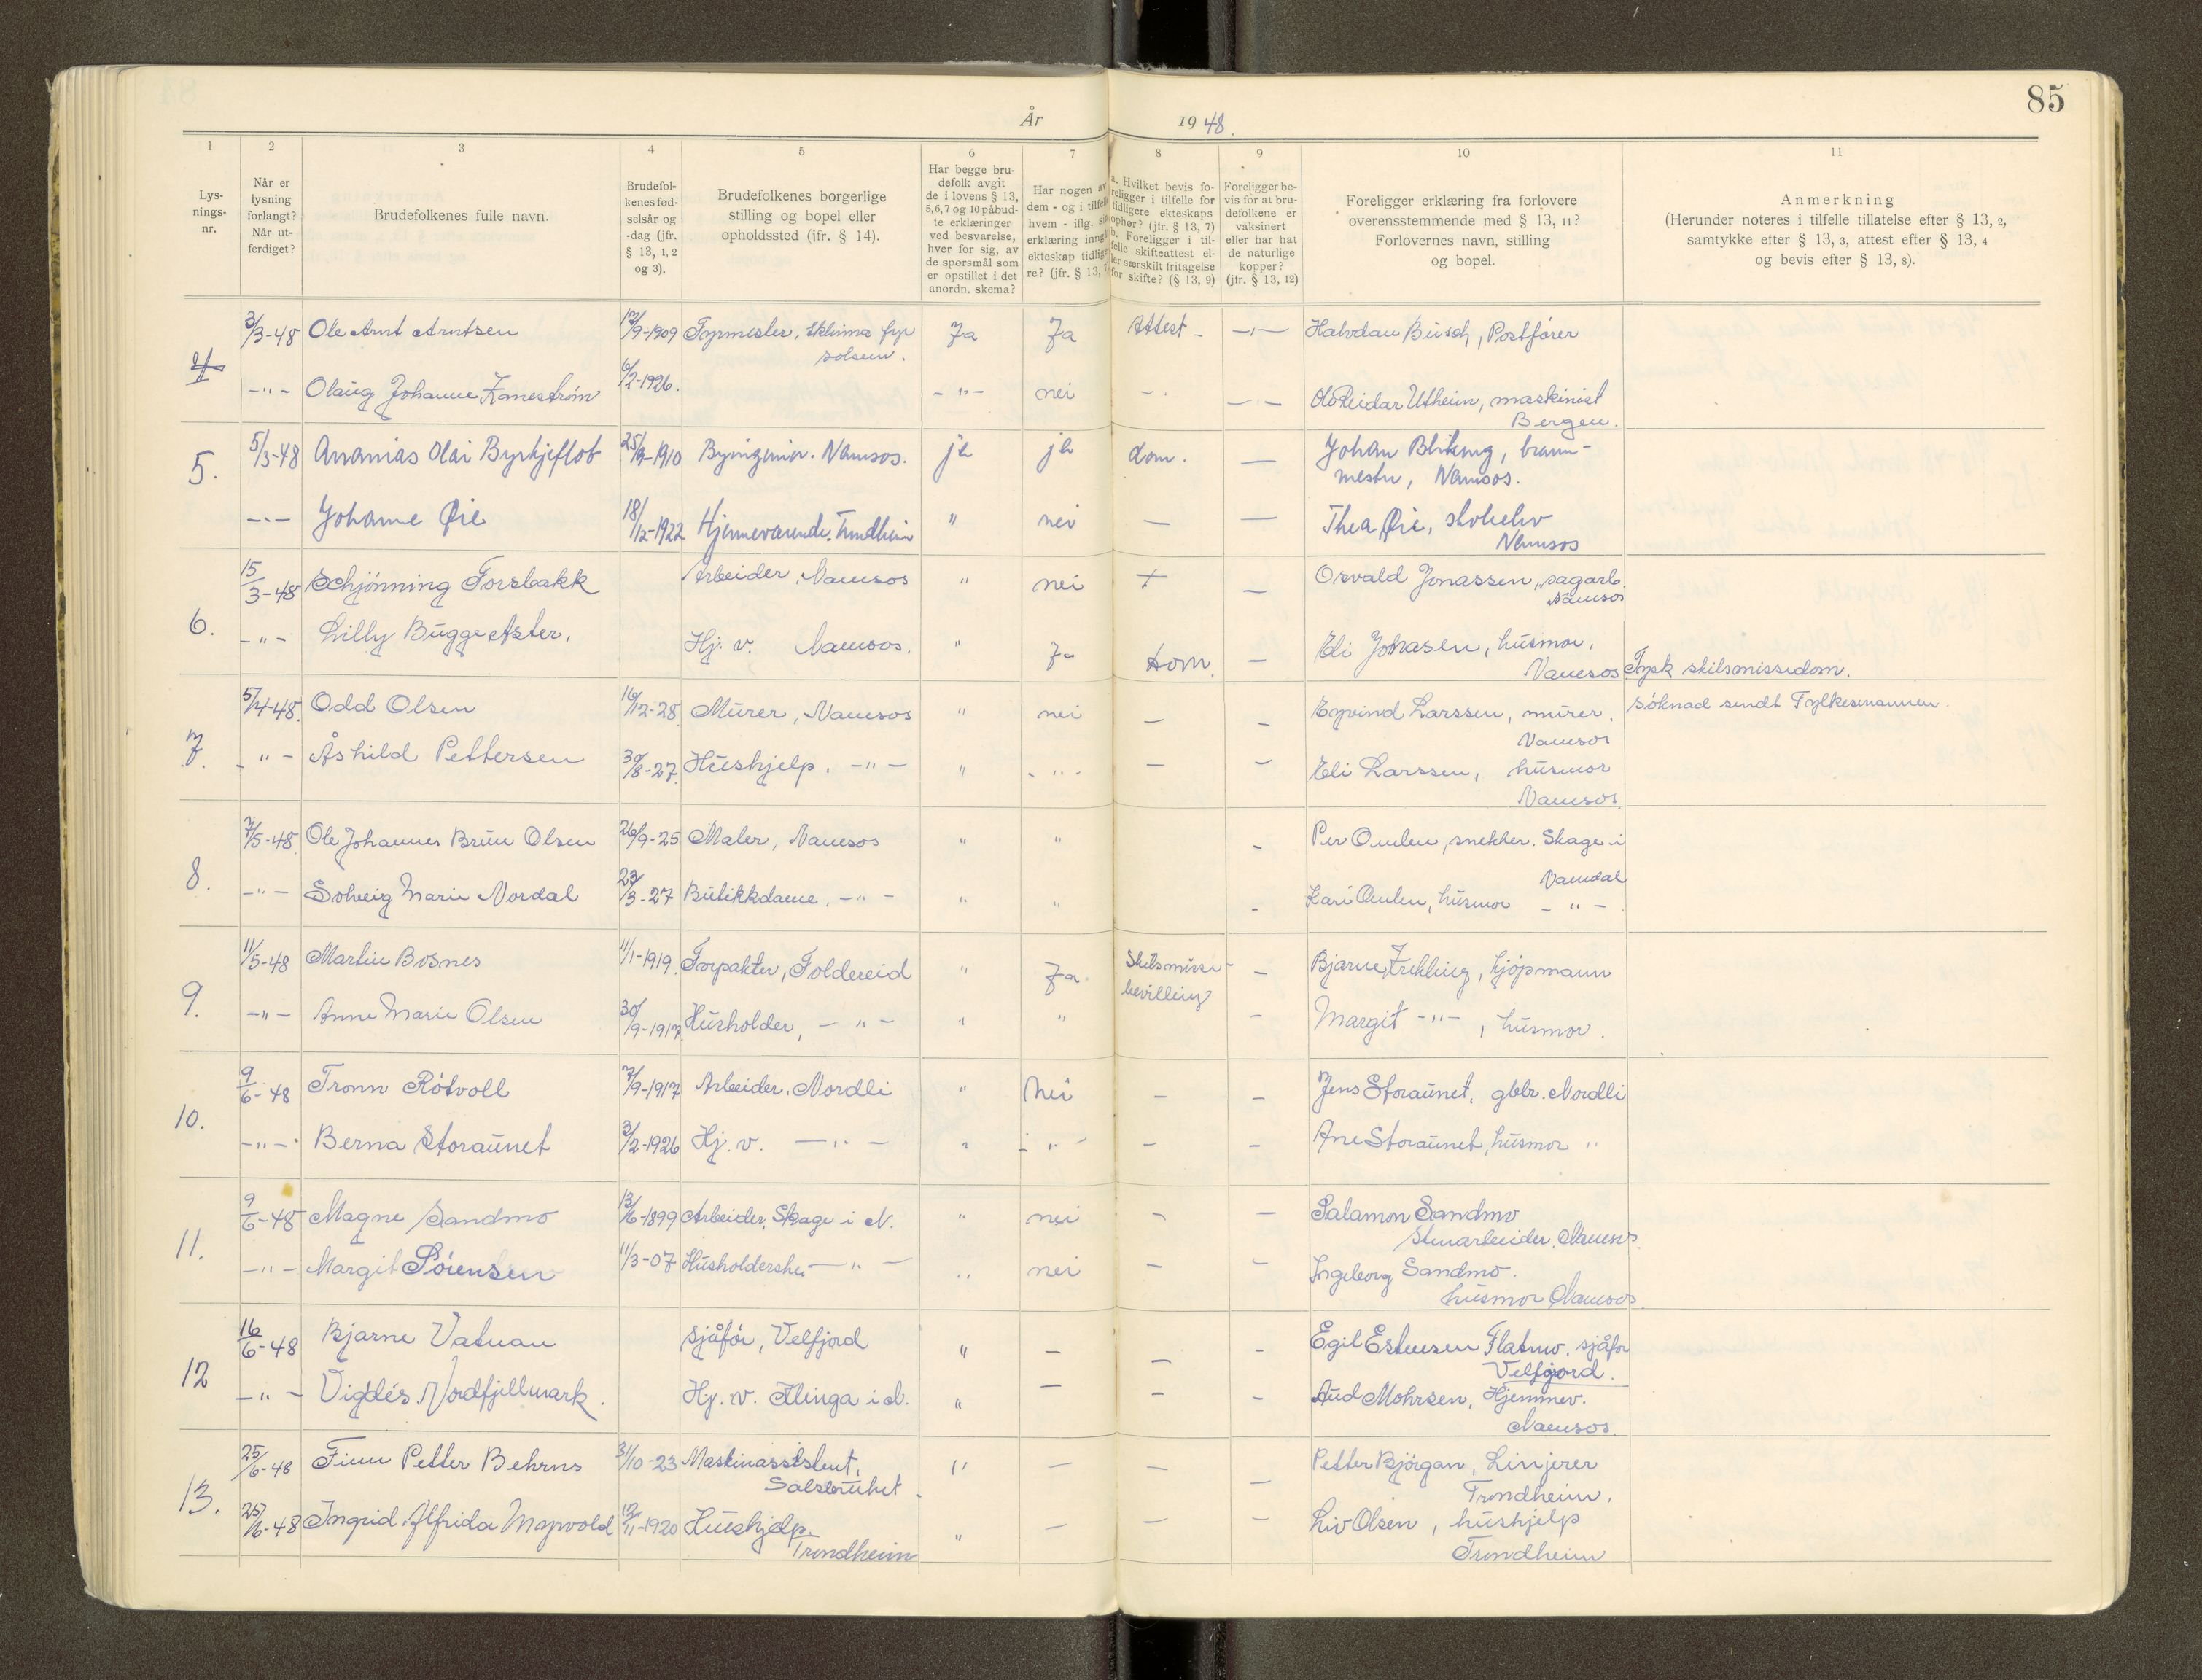 85
År 1948.
1 2 3 4 5 6 7 8 9 10 11
Lys-
nings-
nr.
Når er
lysning
forlangt?
Når ut-
ferdiget?
Brudefolkenes fulle navn.
Brudefol-
kenes fød-
selsår og
-dag (jfr.
§ 13, 1, 2
og 3).
Brudefolkenes borgerlige
stilling og bopel eller
opholdssted (jfr. § 14).
Har begge bru-
defolk avgit
de i lovens § 13,
5, 6, 7 og 10 påbud-
te erklæringer
ved besvarelse,
hver for sig, av
de spørsmål som
er opstillet i det
anordn. skema?
Har nogen av
dem - og i tilfelle
hvem - iflg. sin
erklæring inngått
ekteskap tidlige-
re? (jfr. § 13,
a. Hvilket bevis fo-
religger i tilfelle for
tidligere ekteskaps
ophør? (jfr. § 13, 7)
b. Foreligger i til-
felle skifteattest el-
ler særskilt fritagelse
for skifte? (§ 13, 9)
Foreligger be-
vis for at bru-
defolkene er
vaksinert
eller har hat
de naturlige
kopper?
(jfr. § 13, 12)
Foreligger erklæring fra forlovere
overensstemmende med § 13, 11?
Forlovernes navn, stilling
og bopel.
Anmerkning
(Herunder noteres i tilfelle tillatelse efter § 13, 2,
samtykke efter § 13, 3, attest efter § 13, 4
og bevis efter § 13, 8).
4 3/3-48 Ole Arnt Arntsen 17/9-1909 Fyrmester, Sklinna fyr Ja Ja Attest - -"- Halvdan Busch, Postfører
Solsem.
-"- Olaug Johanne Zanestrøm 6/2-1926. -"- nei - - Ole Reidar Utheim, maskinist
Bergen.
5. 5/3-48 Ananias Olai Byrkjeflot 25/9-1910 Byingeniør. Namsos. ja ja dom. - Johan Bliksvig, brann-
mester, Namsos.
-"- Johanne Øie 18/12-1922 Hjemmeværende. Trondheim " nei - - Thea Øie,
Namsos
6. 15/3-48 Schjønning Forsbakk Arbeider, Namsos " nei + - Osvald Jonassen, sagarb.
Namsos
-"- Lilly Bugge Aster, Hj. v. Namsos. " Ja Dom. - Eli Jonasen, husmor,
Namsos Tysk skilsmissedom.
søknad sendt Fylkesmannen.
7. 5/4-48. Odd Olsen 16/12-28. Murer, Namsos " nei - - Eyvind Larssen, murer.
Namsos
-"- Åshild Pettersen 30/8-27. Hushjelp. -"- " -"- - - Eli Larssen, husmor
Namsos.
8. 7/5-48. Ole Johannes Brun Olsen 26/9-25 Maler, Namsos " " - Per Omlen, snekker. Skage i
Namdal
-"- Solveig Marie Nordal 23/3-27 Butikkdame, -"- " " - Kari Omlen, husmor -"-
9. 11/5-48 Martin Bosnes 11/1-1919. Forpakter, Foldereid " Ja Skilsmisse- - Bjarne Frekling, kjøpmann
bevilling
-"- Anne Marie Olsen 30/9-1917. Husholder, -"- " " - Margit -"-, husmor.
10. 9/6-48 Tronn Røtvoll 7/9-1917 Arbeider. Nordli " Nei - - Jens Storaunet, gbbr. Nordli
-"- Berna Storaunet 3/2-1926 Hj. v. -"- " -"- - - Ane Storaunet, husmor "
11. 9/6-48 Magne Sandmo 13/6-1899 Arbeider, Skage i N. " nei - - Salamon Sandmo
Stuarbeider, Namsos.
-"- Margit Sørensen 11/3-07 Husholderske -"- " nei - - Ingeborg Sandmo.
husmor Namsos
12 16/6-48 Bjarne Vatnan sjåfør, Velfjord " - - - Egil Estensen Flatmo, sjåfør
Velfjord.
-"- Vigdis Nordfjellmark. Hj. v. Klinga i N. " - - - Aud Mohrsen, Hjemmev.
Namsos.
13. 25/6-48 Finn Petter Behrns 31/10-23 Maskinassistent, " - - - Petter Bjørgan, Linjerer
Salsbruket. Trondheim.
25/6-48 Ingrid Alfrida Myrvold 12/11-1920 Hushjelp " - - - Liv Olsen, hushjelp
Trondheim Trondheim